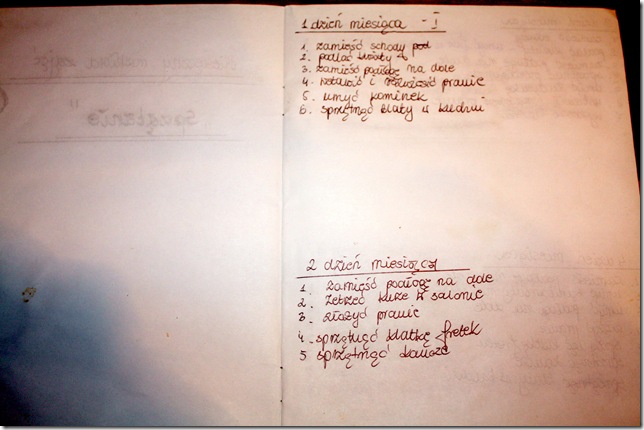 1 dzień miesiąca - I
1. zamieść schody pod
2. podlać kwiaty
3. zamieść podłogę na dole
4. nstawić i rozwiesić pranie
5. umyć kominek
6. sprzątnąć blaty w kuchni
2 dzień miesiąca
1. zamieść podłogę na dole
2. zetrzeć kurze w salonie
3. złożyć pranie
4. sprzątnąć klatkę fretek
5. sprzątnąć
"Sprzątanie"